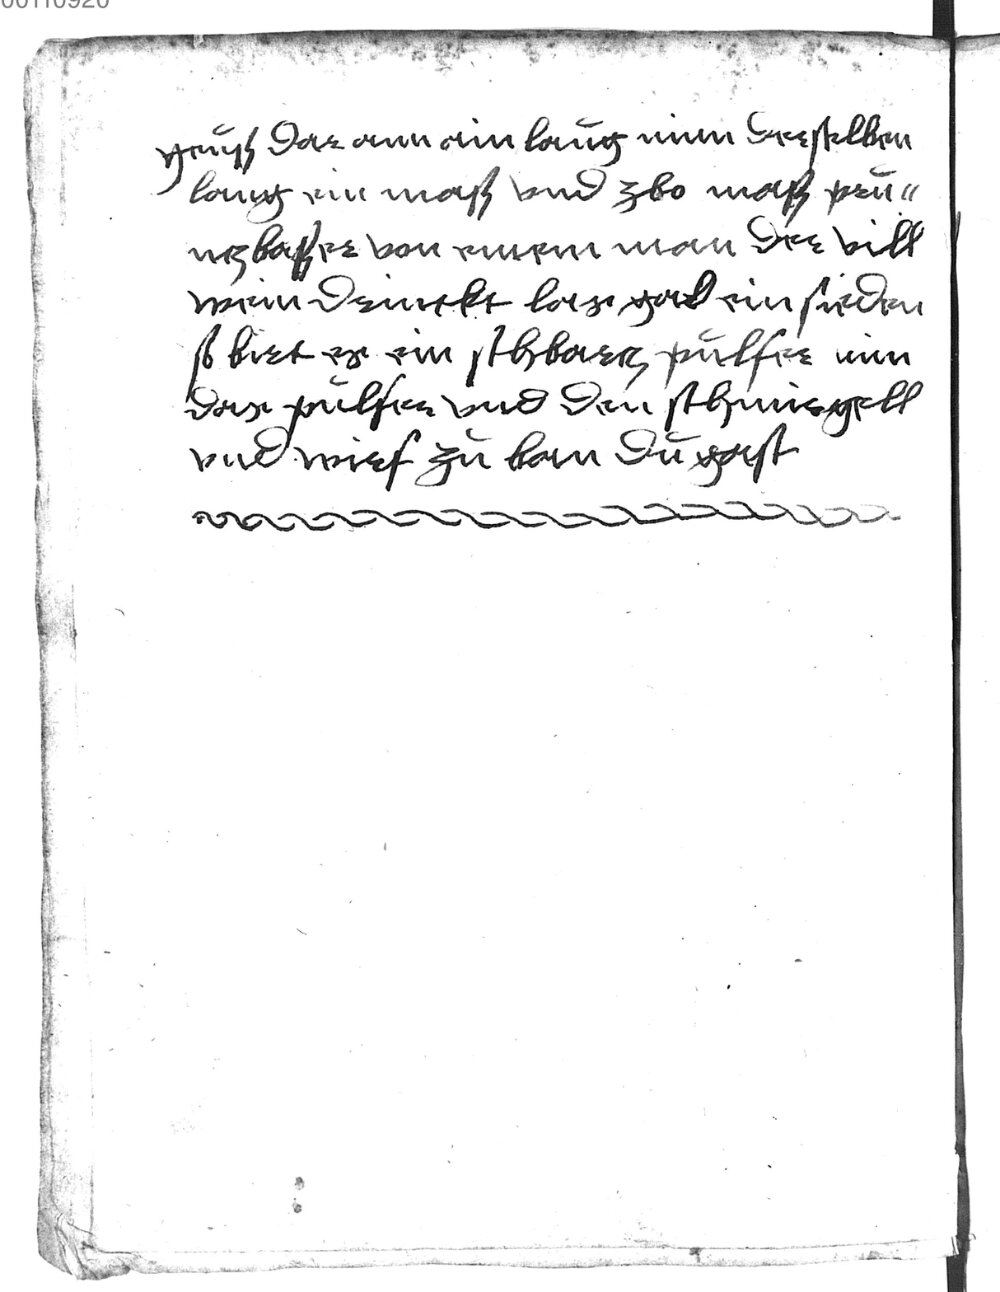 00110920
geuß dar ann ain laug nim derselben
laug ein maß vnd zbo maß pru„
nzbasser von einem man der vill
wein drinckt las gar ein sieden
so birt es ein schbarz pulfer nim
das pulfer vnd den schmirgell
vnd wirf zu ban du gast